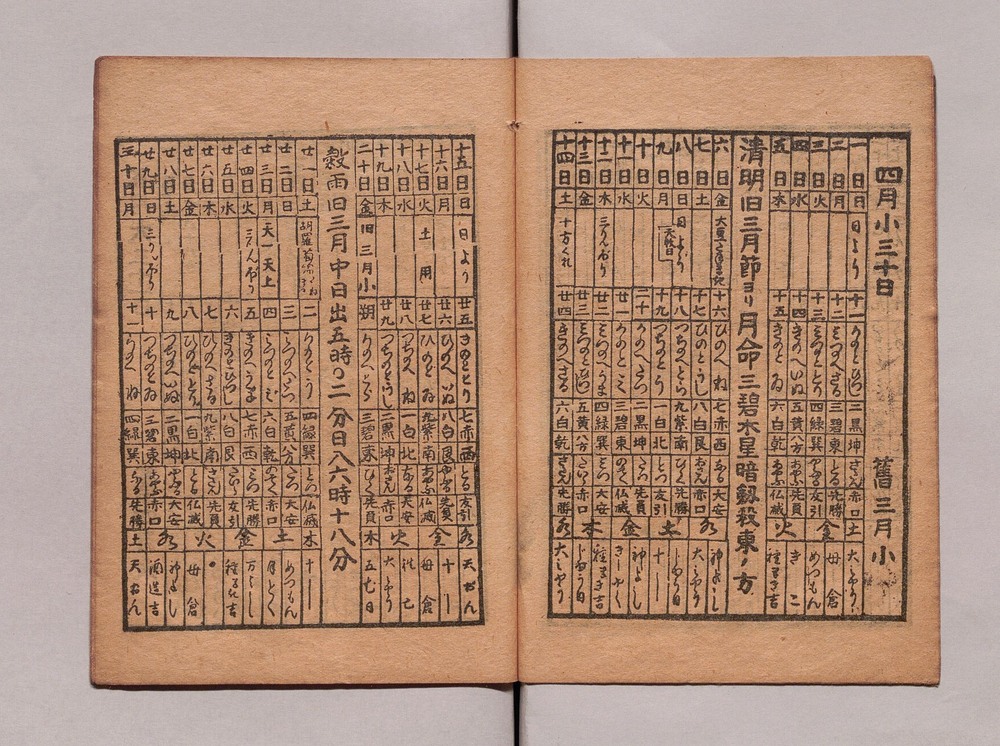 四月小三十日 舊三月小
一日日 日より 十一 かのとひつじ 二黒坤 さだん 赤口 土 大みやう
二日月 十二 三碧東 とる 先勝 母倉
三日火 十三 みつのととり 四緑巽 やぶる 友引 金 めつもん
四日水 十四 きのへいぬ 五黄八方 あやぶ 先負 きこ
五日木 十五 きのとゐ 六白乾 なる 仏滅 火 種まき吉
清明旧三月節ヨリ月命三碧木星暗剱殺東ノ方
六日金 十六 ひのへね 七赤西 なる 大安 神よし
七日土 十七 ひのとうし 八白艮 おさん 赤口 水 大みやう
八日日 日より 十八 つちのへとら 九紫南 ひらく 先勝
九日月 天赦日 十九 つちのとう 一白北 とづ 友引 土 十し
十日火 二十 かのへたつ 二黒坤 たつ 先負 神よし
十一日水 廿一 かのとみ 三碧東 のぞく 仏滅 金
十二日木 三りんぼう 廿二 みつのへうま 四緑巽 みつ 大安 種まき吉
十三日金 廿三 みつのとひつじ 五黄八方 たいら 赤口 木
十四日土 十方くれ 廿四 きのへさる 六白乾 さだん 先勝 水 大みやう
十五日日 日より 廿五 きのととり 七赤西 とる 友引 水 天おん
十六日月 廿六 ひのへいぬ 八白艮 やぶる 先負 十し
十七日火 土用 廿七 ひのとゐ 九紫南 あやぶ 仏滅 金 母倉
十八日水 廿八 つちのへね 一白北 なる 大安
十九日木 廿九 つちのとうし 二黒坤 おさん 赤口 火 大みやう
二十日金 旧三月小 朔 かのへとら 三碧東 ひらく 先負 木 五七日
穀雨旧三月中日出五時〇二分日入六時十八分
廿一日土 二 かのとう 四緑巽 とづ 仏滅 木 十し
廿二日日 三 みつのへたつ 五黄八方 たつ 大安 土 めつもん
廿三日月 天一天上 四 みつのとみ 六白乾 のぞく 赤口 月とく
廿四日火 三りんぼう 五 きのへうま 七赤西 みつ 先勝 金 万よし
廿五日水 六 きのとひつじ 八白艮 たいら 友引 種まき吉
廿六日木 七 ひのへさる 九紫南 さだん 先負 火
廿七日金 八 ひのととり 一白北 とる 仏滅 母倉
廿八日土 九 つちのへいぬ 二黒坤 やぶる 大安 水 神よし
廿九日日 三りんぼう 十 つちのとゐ 三碧東 あやぶ 赤口 酒造吉
三十日月 十一 かのへね 四緑巽 なる 先勝 土 天おん